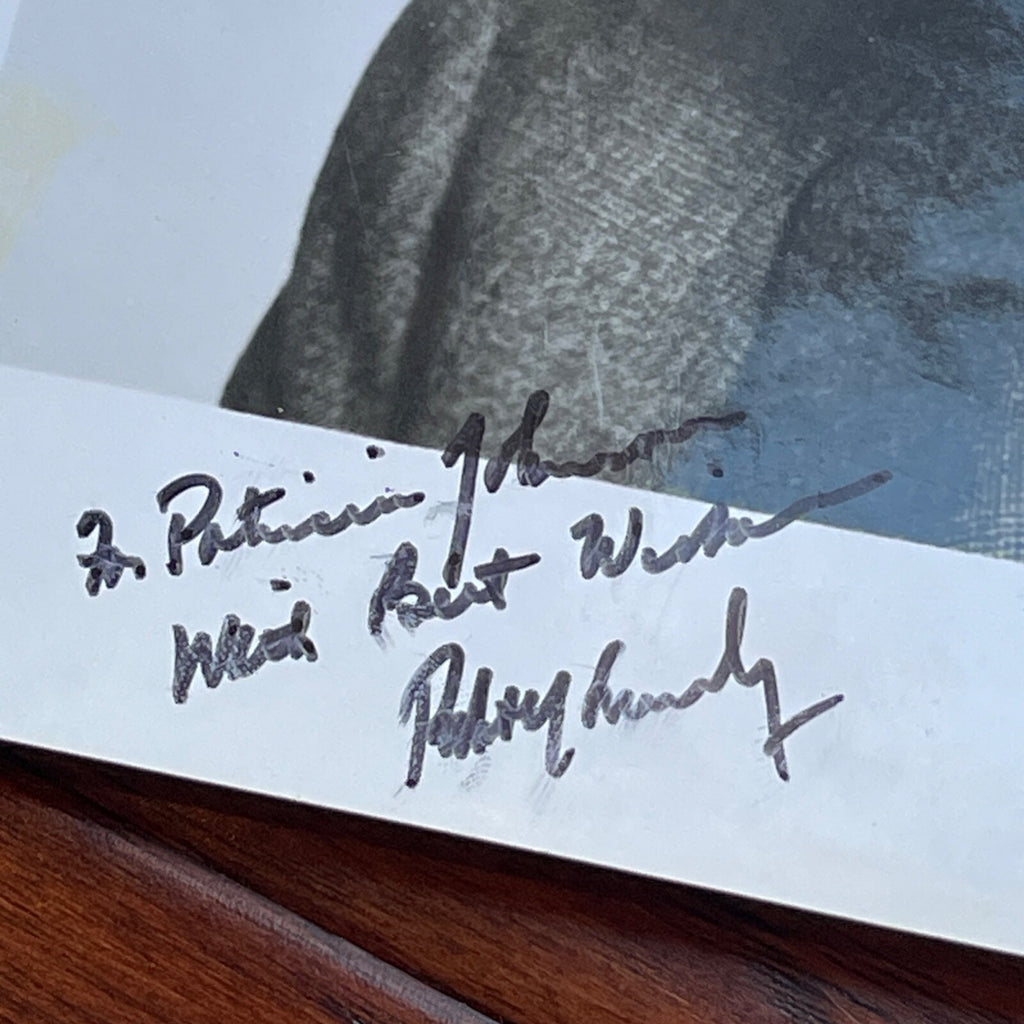 To Patricia Johnson
With Best Wishes
Robert Kennedy